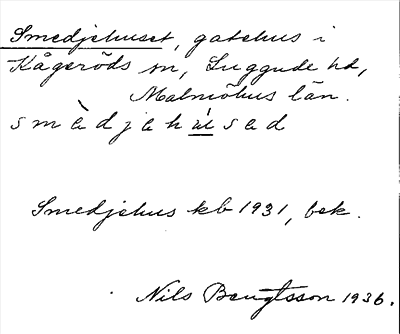 Smedjehuset, gatehus i
Kågeröds sn, Luggude hd,
Malmöhus län.
smàdjahúsad
Smedjehus kb 1931, bek.
Nils Bengtsson 1936.